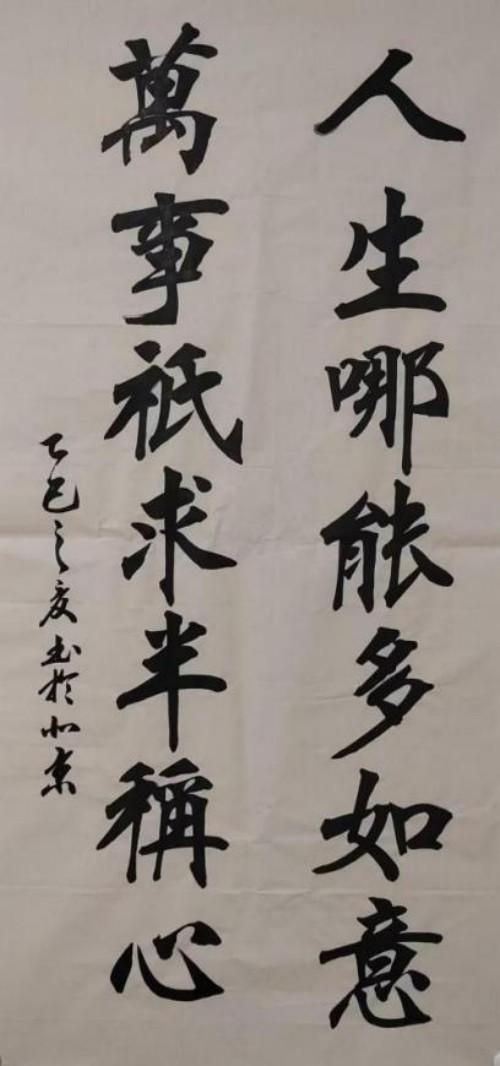 人生哪能多如意
萬事祇求半稱心
乙巳之夏書於北京